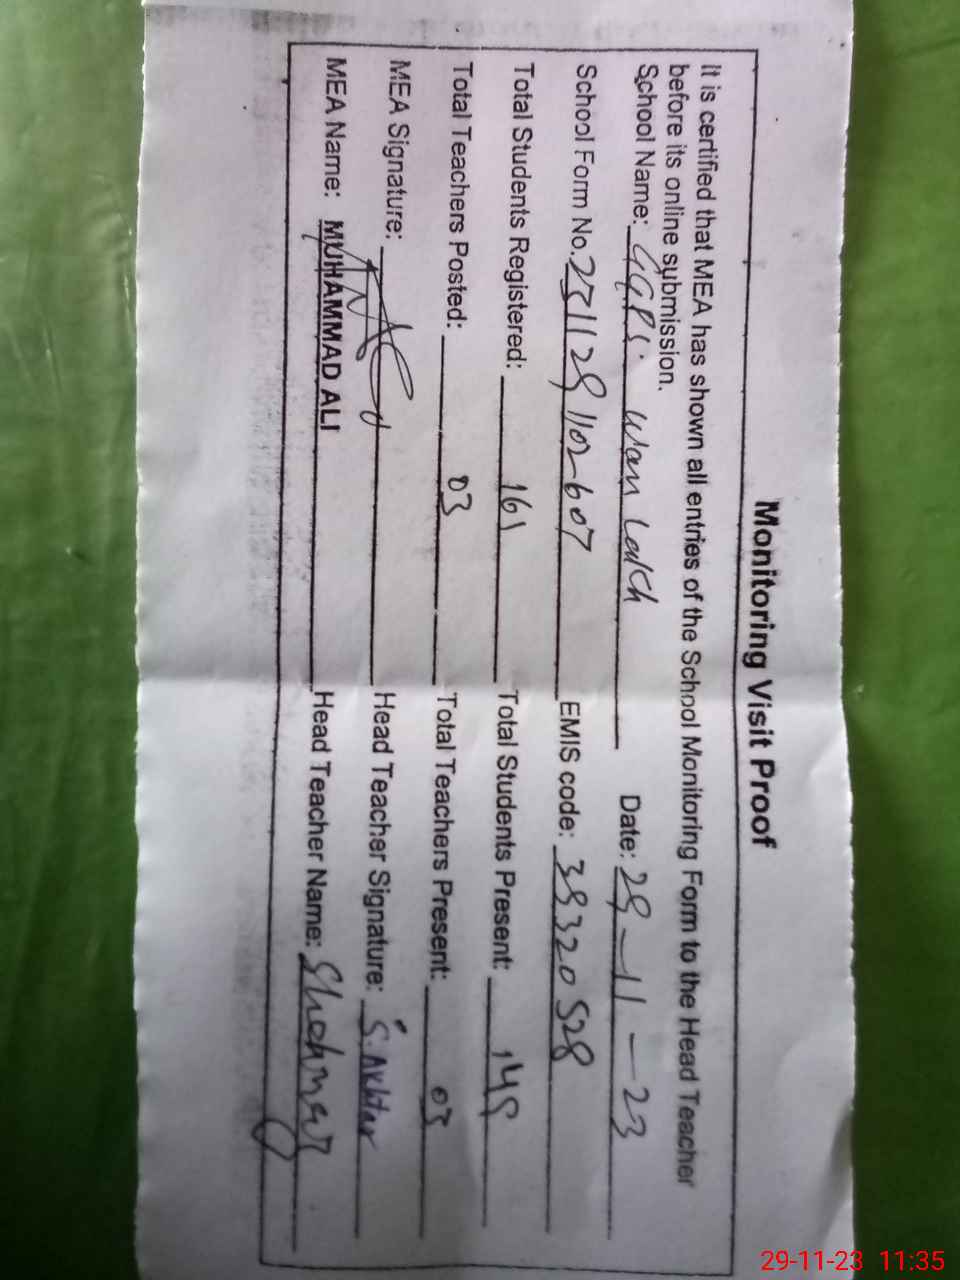 Monitoring Visit Proof
It is certified that MEA has shown all entries of the School Monitoring Form to the Head Teacher
before its online submission.
School Name: GGPS. Wan Date: 29-11-23
School Form No. 2311291102-607 EMIS code: 39320528
Total Students Registered: 161 Total Students Present: 149
Total Teachers Posted: 03 Total Teachers Present: 03
MEA Signature: Head Teacher Signature: S. Akhtar
MEA Name: MUHAMMAD ALI Head Teacher Name:
29-11-23 11:35